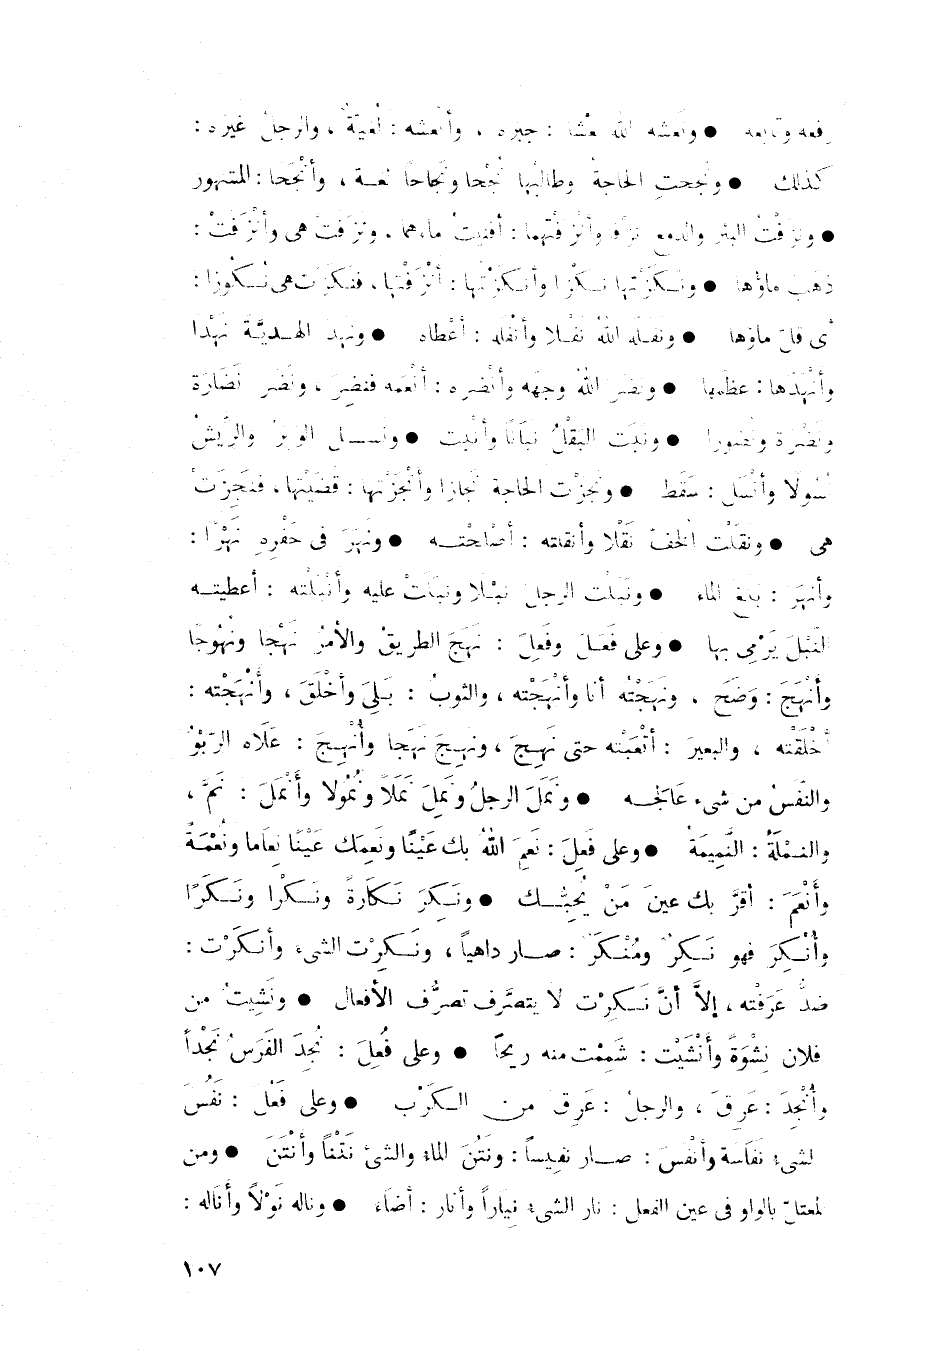 رفعه وتابعه ● ونعشه الله نعشا : جبره ، وأنعشه : لُغيّة ، والرجلُ غيرَه :
كذلك ● ونَجحتِ الحاجةُ وطالبُها نُجْحا ونَجاحاً لغـة ، وأنْجَحا : المشهور
● ونَزَفْتُ البئر والدمع نزْفا وأنْزَفْتهما : أفنيتُ ماءهما ، ونَزَفَتْ هى وأنْزَفَتْ :
ذهب ماؤها ● ونَـكَزْتها نـكْزا وأنـكزْتُها : أنْزَفْتها ، فنـكَزَت هى نُـكُوزا :
أى قلّ ماؤها ● ونفَله اللهُ نَفْـلا وأنْفَله : أعْطاه ● ونَهد الهـديَّـة نَهْدا
وأنْهدَها : عظَّمها ● ونضَر اللهُ وجهَه وأنْضره : أنْعَمه فنضِرَ ، ونَضَر نَضَارَة
ونَضْرَة ونُضورا ● ونَبَت البَقْلُ نباتاً وأنْبت ● ونَسـل الوبَرُ والرِّيشُ
نُسُولًا وأنْسَل : سَقَط ● ونَجَزْت الحاجة نَجازا وأنْجَزْتها : قضَيْتها ، فنَجِزَتْ
هى ● ونقَلْت الخفّ نَقْلا وأنقلته : أصْلَحْتـه ● ونَهَرَ فى حَفْرهِ نَهْرًا :
وأنهرَ : بلغ الماء ● ونَبَلْت الرجلَ نَبْـلا ونبَلتُ عليه وأنْبَلْته : أعطيتـه
النَّبْلَ يَرْمِى بها ● وعلى فَعَـلَ وفَعِلَ : نَهَجَ الطريقُ والأمْرُ نَهْجا ونُهُوجًا
وأنْهَجَ : وَضَحَ ، ونَهَجْتُه أنا وأنْهَجْته ، والثوبُ : بَـلِيَ وأخْلَقَ ، وأنْهَجْته :
أخْلَقْته ، والبعيرَ : أتْعَبْته حتى نَهِـجَ ، ونهِـجَ نَهَجا وأُنْهِـجَ : عَلَاه الرّبْوُ
والنَّفَسُ من شىء عَالَجَـه ● ونَمَلَ الرجلُ ونَمِلَ نَمَلاً ونُمُولا وأَنْمَلَ : نَمَّ ،
والنـمْلَةُ : النَّمِيمَةُ ● وعلى فَعِلَ : نَعِمَ اللهُ بك عَيْنًا ونَعِمَك عَيْنًا نِعاما ونُعْمَـةً
وأَنْعَمَ : أقرَّ بك عينَ مَنْ يُحِبُّـك ● ونَـكِرَ نَـكَارةً ونُـكْرا ونَـكَرًا
وأُنْـكِرَ فهو نَـكِرٌ ومُنْـكَرٌ : صـار داهياً ، ونَـكِرْت الشىء وأنـكَرْت :
ضدُّ عَرَفْته ، إلاَّ أنَّ نَـكِرْت لا يتصَرَّف تصرُّف الأفعال ● ونَشِيتُ من
فلان نِشْوَةً وأَنْشَيْت : شَمِمْت منه ريحًا ● وعلى فُعِلَ : نُجِدَ الفَرَسُ نَجْداً
وأُنْجِدَ : عَرِقَ ، والرجلُ : عَرِقَ مـن الـكَرْب ● وعلى فَعُلَ : نَفُسَ
الشىء نَفَاسَة وأَنْفَسَ : صـار نفيساً : ونَتُنَ الماء والشئ نَتْناً وأَنْتَنَ ● ومن
المعتلّ بالواو فى عين الفعل : نار الشىء نِيَاراً وأنار : أضَاء ● وناله نَوْلاً وأَناله :
١٠٧